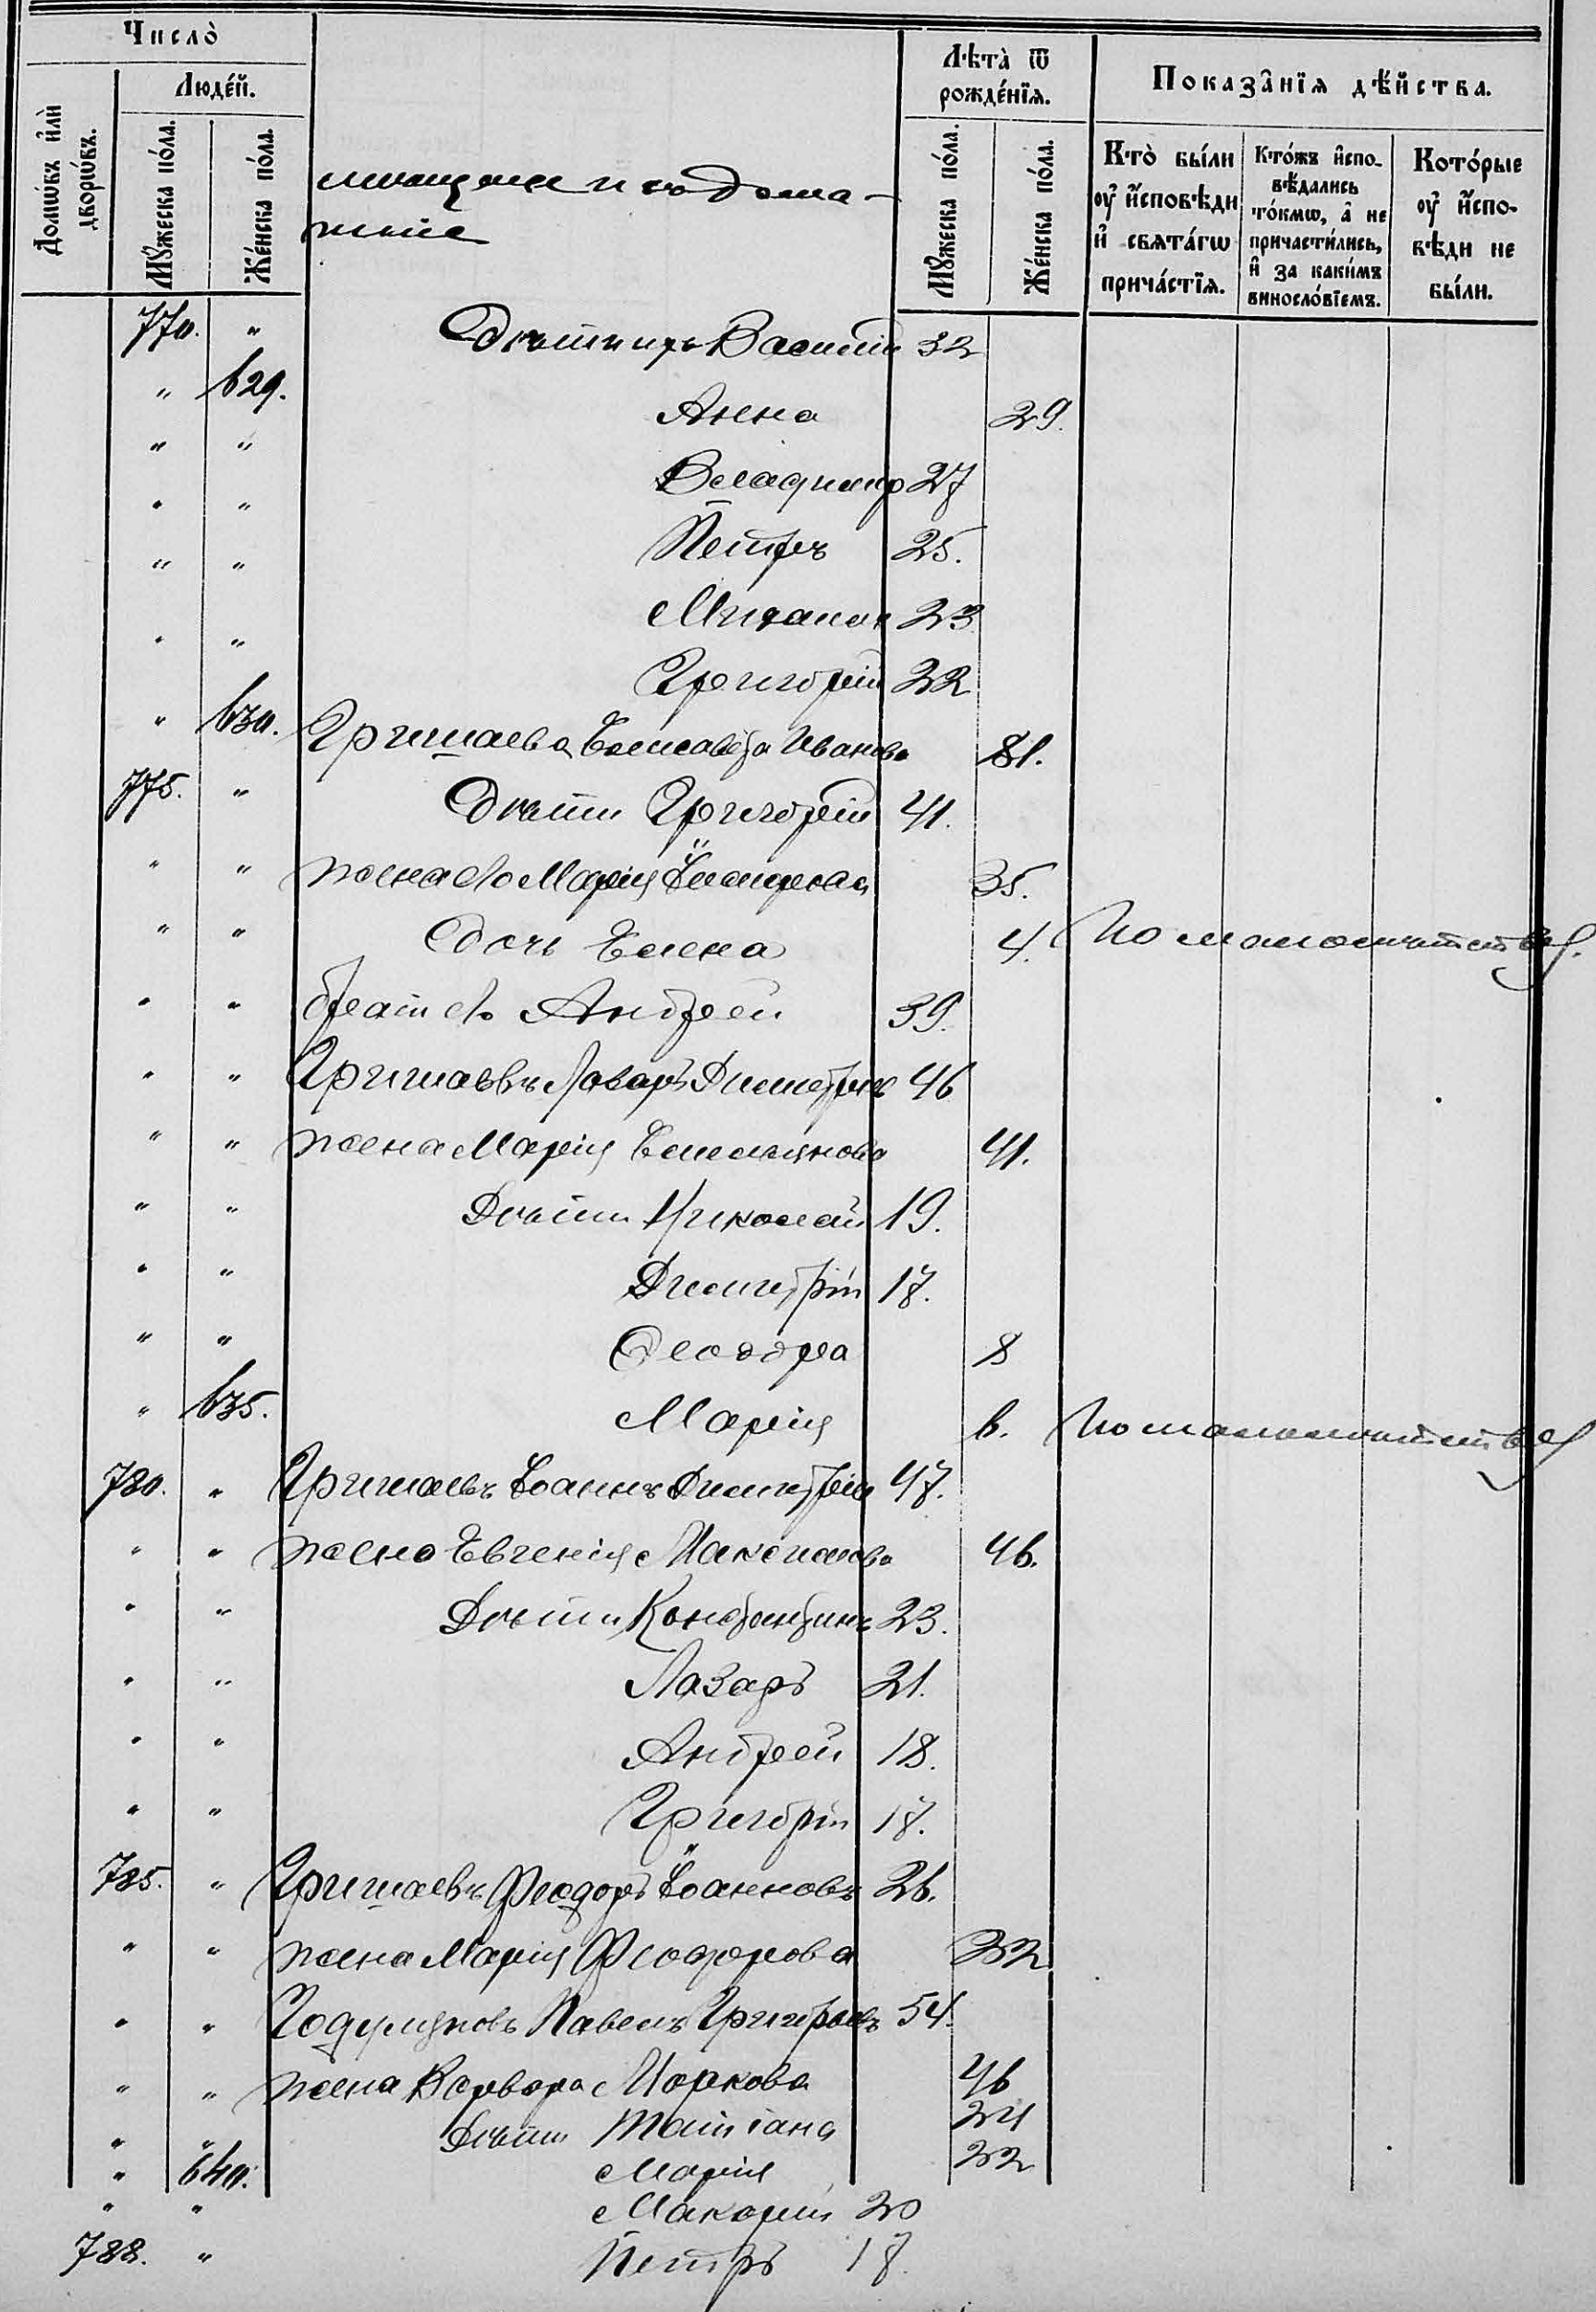 Число̀
Людéй.
Домѡ́въ и҆лѝ дворѡ́въ.
Мꙋ́жеска пóла.
Же́нска пóла.
Лѣта̀ ѿ рожде́нїѧ.
Мꙋ́жеска пóла.
Же́нска пóла.
Показа̂нїѧ дѣ́йства.
Ктò были оу҆ и҆сповѣди и҆ свѧта́гѡ прича́стїѧ.
Кто́жъ и҆сповѣдались то́кмѡ, а҆ не причасти́лись, и҆ за каки́мъ винослóвїемъ.
Котóрые оу҆ и҆сповѣди не были.
и домашніе
770. " Дѣти ихъ Василій 32
" 629. Анна 29.
" " Владимір 27
" " Петръ 25.
" " Михаил 23
" " Григорій 22
" 630. Гришаева Елисавета Иванова 81.
775. " Дѣти Григорій 41.
" " жена его Марія 35.
" " Дочь Елена 4. По малолѣтству.
" " брат его Андрей 39.
" " Гришаевъ Лазарь Димитріев 46
" " жена Марія Емельянова 41.
" " Дѣти Николай 19.
" " Димитрій 17.
" " Феодора 8
" 635. Марія 6. По малолѣтству
780. " Гришаевъ Іоаннъ Димитріев 47.
" " жена Евгенія Максимова 46.
" " Дѣти Константинъ 23.
" " Лазарь 21.
" " Андрей 18.
" " Григорій 17.
785. " Гришаевъ Феодоръ Іоанновъ 26.
" " жена Марія Феодорова 22
" " Павелъ Григорьевъ 54.
" " жена Варвара Маркова 46
" " Дѣти Татіана 24
" 640. Марія 22
" " Макарій 20
788. " Петръ 17.